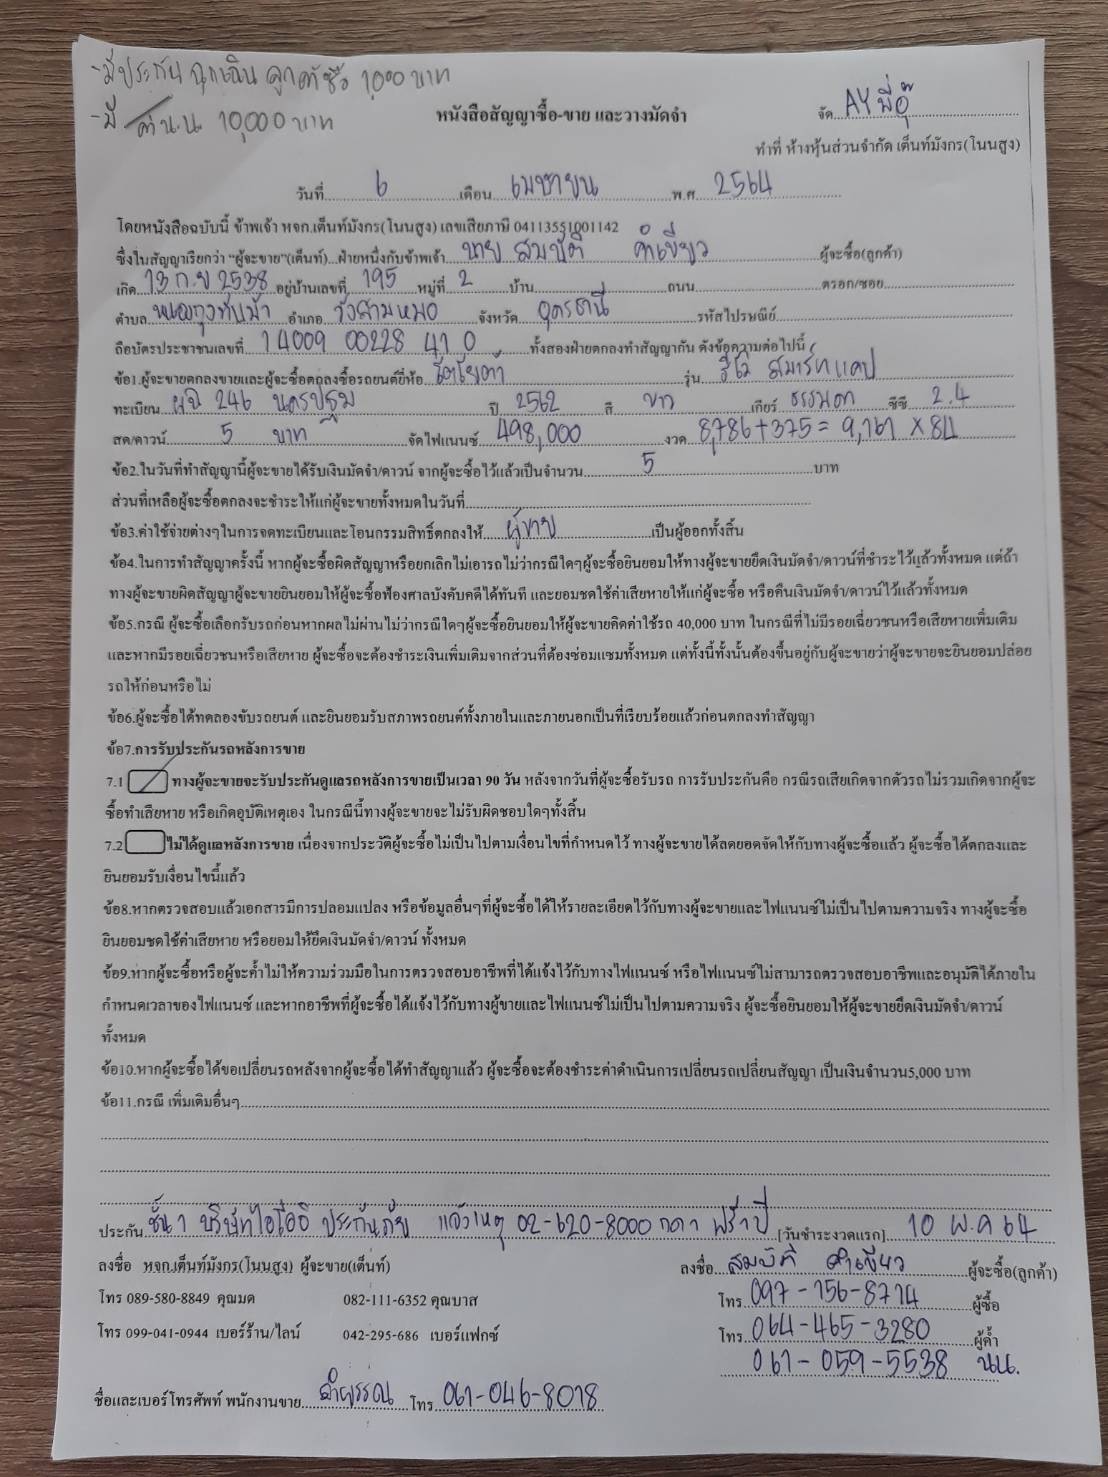 -มีประกัน ฉุกเฉิน ลูกค้าซื้อ 1000 บาท
-มี ค่านน. 10,000 บาท
หนังสือสัญญาซื้อ-ขาย และวางมัดจำ
จัด AY พี่อู๊
ทำที่ ห้างหุ้นส่วนจำกัด เต็นท์มังกร(โนนสูง)
วันที่ 6 เดือน เมษายน พ.ศ. 2564
โดยหนังสือฉบับนี้ ข้าพเจ้า หจก.เต็นท์มังกร(โนนสูง) เลขเสียภาษี 04113551001142
ซึ่งในสัญญาเรียกว่า "ผู้จะขาย"(เต็นท์)...ฝ่ายหนึ่งกับข้าพเจ้า นาย สมบัติ คำเขียว ผู้จะซื้อ(ลูกค้า)
เกิด 13 ก.ย 2538 อยู่บ้านเลขที่ 195 หมู่ที่ 2 บ้าน ถนน ตรอก/ซอย
ตำบล หนองกุงทับม้า อำเภอ วังสามหมอ จังหวัด อุดรธานี รหัสไปรษณีย์
ถือบัตรประชาชนเลขที่ 1 4009 00228 41 0 ทั้งสองฝ่ายตกลงทำสัญญากัน ดังข้อความต่อไปนี้
ข้อ1.ผู้จะขายตกลงขายและผู้จะซื้อตกลงซื้อรถยนต์ยี่ห้อ โตโยต้า รุ่น รีโว่ สมาร์ทแคป
ทะเบียน ผฉ 246 นครปฐม ปี 2562 สี ขาว เกียร์ ธรรมดา ซีซี 2.4
สด/ดาวน์ 5 บาท จัดไฟแนนซ์ 498,000 งวด 8,786+375 = 9,161 x 84
ข้อ2.ในวันที่ทำสัญญานี้ผู้จะขายได้รับเงินมัดจำ/ดาวน์ จากผู้จะซื้อไว้แล้วเป็นจำนวน 5 บาท
ส่วนที่เหลือผู้จะซื้อตกลงจะชำระให้แก่ผู้จะขายทั้งหมดในวันที่
ข้อ3.ค่าใช้จ่ายต่างๆในการจดทะเบียนและโอนกรรมสิทธิ์ตกลงให้ ผู้ขาย เป็นผู้ออกทั้งสิ้น
ข้อ4.ในการทำสัญญาครั้งนี้ หากผู้จะซื้อผิดสัญญาหรือยกเลิกไม่เอารถไม่ว่ากรณีใดๆผู้จะซื้อยินยอมให้ทางผู้จะขายยึดเงินมัดจำ/ดาวน์ที่ชำระไว้แล้วทั้งหมด แต่ถ้า
ทางผู้จะขายผิดสัญญาผู้จะขายยินยอมให้ผู้จะซื้อฟ้องศาลบังคับคดีได้ทันที และยอมชดใช้ค่าเสียหายให้แก่ผู้จะซื้อ หรือคืนเงินมัดจำ/ดาวน์ไว้แล้วทั้งหมด
ข้อ5.กรณี ผู้จะซื้อเลือกรับรถก่อนหากผลไม่ผ่านไม่ว่ากรณีใดๆผู้จะซื้อยินยอมให้ผู้จะขายคิดค่าใช้รถ 40,000 บาท ในกรณีที่ไม่มีรอยเฉี่ยวชนหรือเสียหายเพิ่มเติม
และหากมีรอยเฉี่ยวชนหรือเสียหาย ผู้จะซื้อจะต้องชำระเงินเพิ่มเติมจากส่วนที่ต้องซ่อมแซมทั้งหมด แต่ทั้งนี้ทั้งนั้นต้องขึ้นอยู่กับผู้จะขายว่าผู้จะขายจะยินยอมปล่อย
รถให้ก่อนหรือไม่
ข้อ6.ผู้จะซื้อได้ทดลองขับรถยนต์ และยินยอมรับสภาพรถยนต์ทั้งภายในและภายนอกเป็นที่เรียบร้อยแล้วก่อนตกลงทำสัญญา
ข้อ7.การรับประกันรถหลังการขาย
7.1 ทางผู้จะขายจะรับประกันดูแลรถหลังการขายเป็นเวลา 90 วัน หลังจากวันที่ผู้จะซื้อรับรถ การรับประกันคือ กรณีรถเสียเกิดจากตัวรถไม่รวมเกิดจากผู้จะ
ซื้อทำเสียหาย หรือเกิดอุบัติเหตุเอง ในกรณีนี้ทางผู้จะขายจะไม่รับผิดชอบใดๆทั้งสิ้น
7.2 ไม่ได้ดูแลหลังการขาย เนื่องจากประวัติผู้จะซื้อไม่เป็นไปตามเงื่อนไขที่กำหนดไว้ ทางผู้จะขายได้ลดยอดจัดให้กับทางผู้จะซื้อแล้ว ผู้จะซื้อได้ตกลงและ
ยินยอมรับเงื่อนไขนี้แล้ว
ข้อ8.หากตรวจสอบแล้วเอกสารมีการปลอมแปลง หรือข้อมูลอื่นๆที่ผู้จะซื้อได้ให้รายละเอียดไว้กับทางผู้จะขายและไฟแนนซ์ไม่เป็นไปตามความจริง ทางผู้จะซื้อ
ยินยอมชดใช้ค่าเสียหาย หรือยอมให้ยึดเงินมัดจำ/ดาวน์ ทั้งหมด
ข้อ9.หากผู้จะซื้อหรือผู้จะค้ำไม่ให้ความร่วมมือในการตรวจสอบอาชีพที่ได้แจ้งไว้กับทางไฟแนนซ์ หรือไฟแนนซ์ไม่สามารถตรวจสอบอาชีพและอนุมัติได้ภายใน
กำหนดเวลาของไฟแนนซ์ และหากอาชีพที่ผู้จะซื้อได้แจ้งไว้กับทางผู้ขายและไฟแนนซ์ไม่เป็นไปตามความจริง ผู้จะซื้อยินยอมให้ผู้จะขายยึดเงินมัดจำ/ดาวน์
ทั้งหมด
ข้อ10.หากผู้จะซื้อได้ขอเปลี่ยนรถหลังจากผู้จะซื้อได้ทำสัญญาแล้ว ผู้จะซื้อจะต้องชำระค่าดำเนินการเปลี่ยนรถเปลี่ยนสัญญา เป็นเงินจำนวน5,000 บาท
ข้อ11.กรณี เพิ่มเติมอื่นๆ
ประกัน ชั้น 1 บริษัทไอโออิ ประกันภัย แจ้งเหตุ 02-620-8000 กดา ฟรี 1 ปี [วันชำระงวดแรก] 10 พ.ค 64
ลงชื่อ หจก.เต็นท์มังกร(โนนสูง) ผู้จะขาย(เต็นท์) ลงชื่อ สมบัติ คำเขียว ผู้จะซื้อ(ลูกค้า)
โทร 089-580-8849 คุณมด 082-111-6352 คุณบาส โทร 097-156-8714 ผู้ซื้อ
โทร 099-041-0944 เบอร์ร้าน/ไลน์ 042-295-686 เบอร์แฟกซ์ โทร 064-465-3280 ผู้ค้ำ
061-059-5538 นน.
ชื่อและเบอร์โทรศัพท์ พนักงานขาย ลำพรรณ โทร 061-046-8018